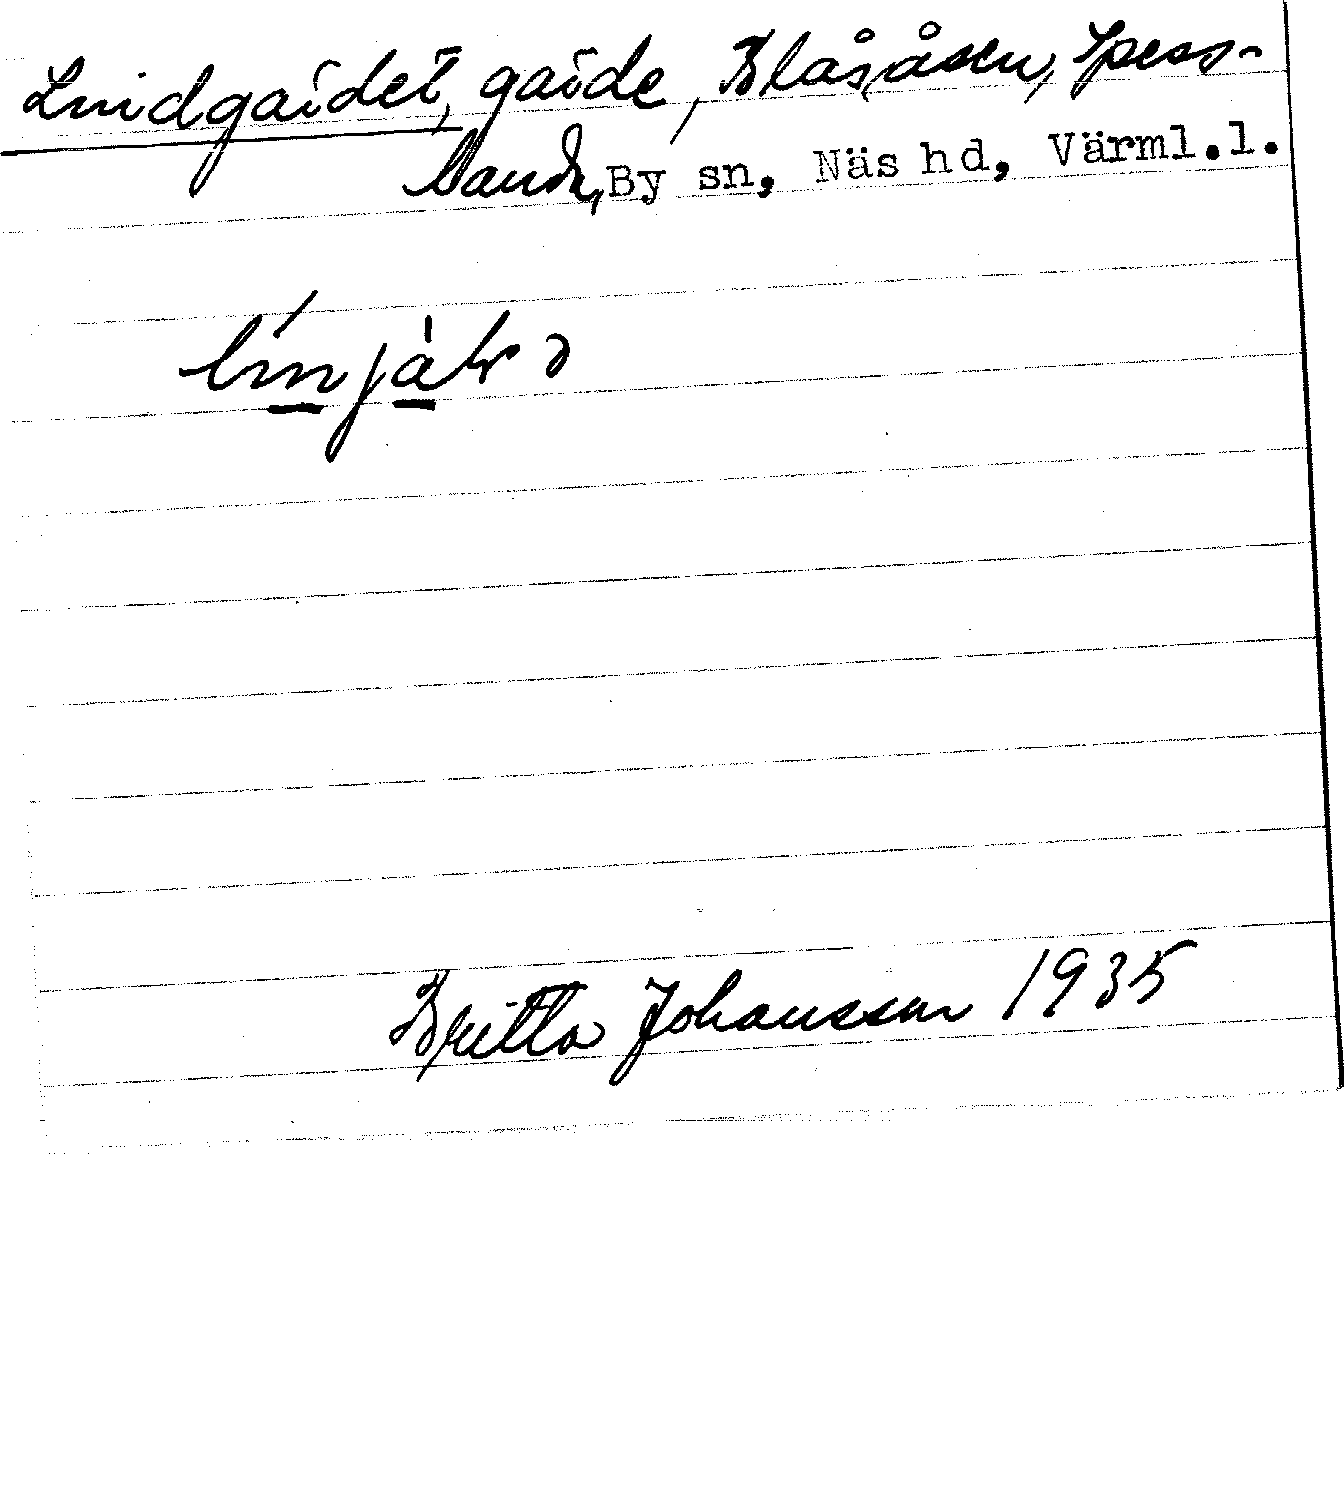 Lindgärdet, gärde, Blåsåsen, Spess-
landa, By sn, Näs hd, Värml.l.
Britta Johansson 1935